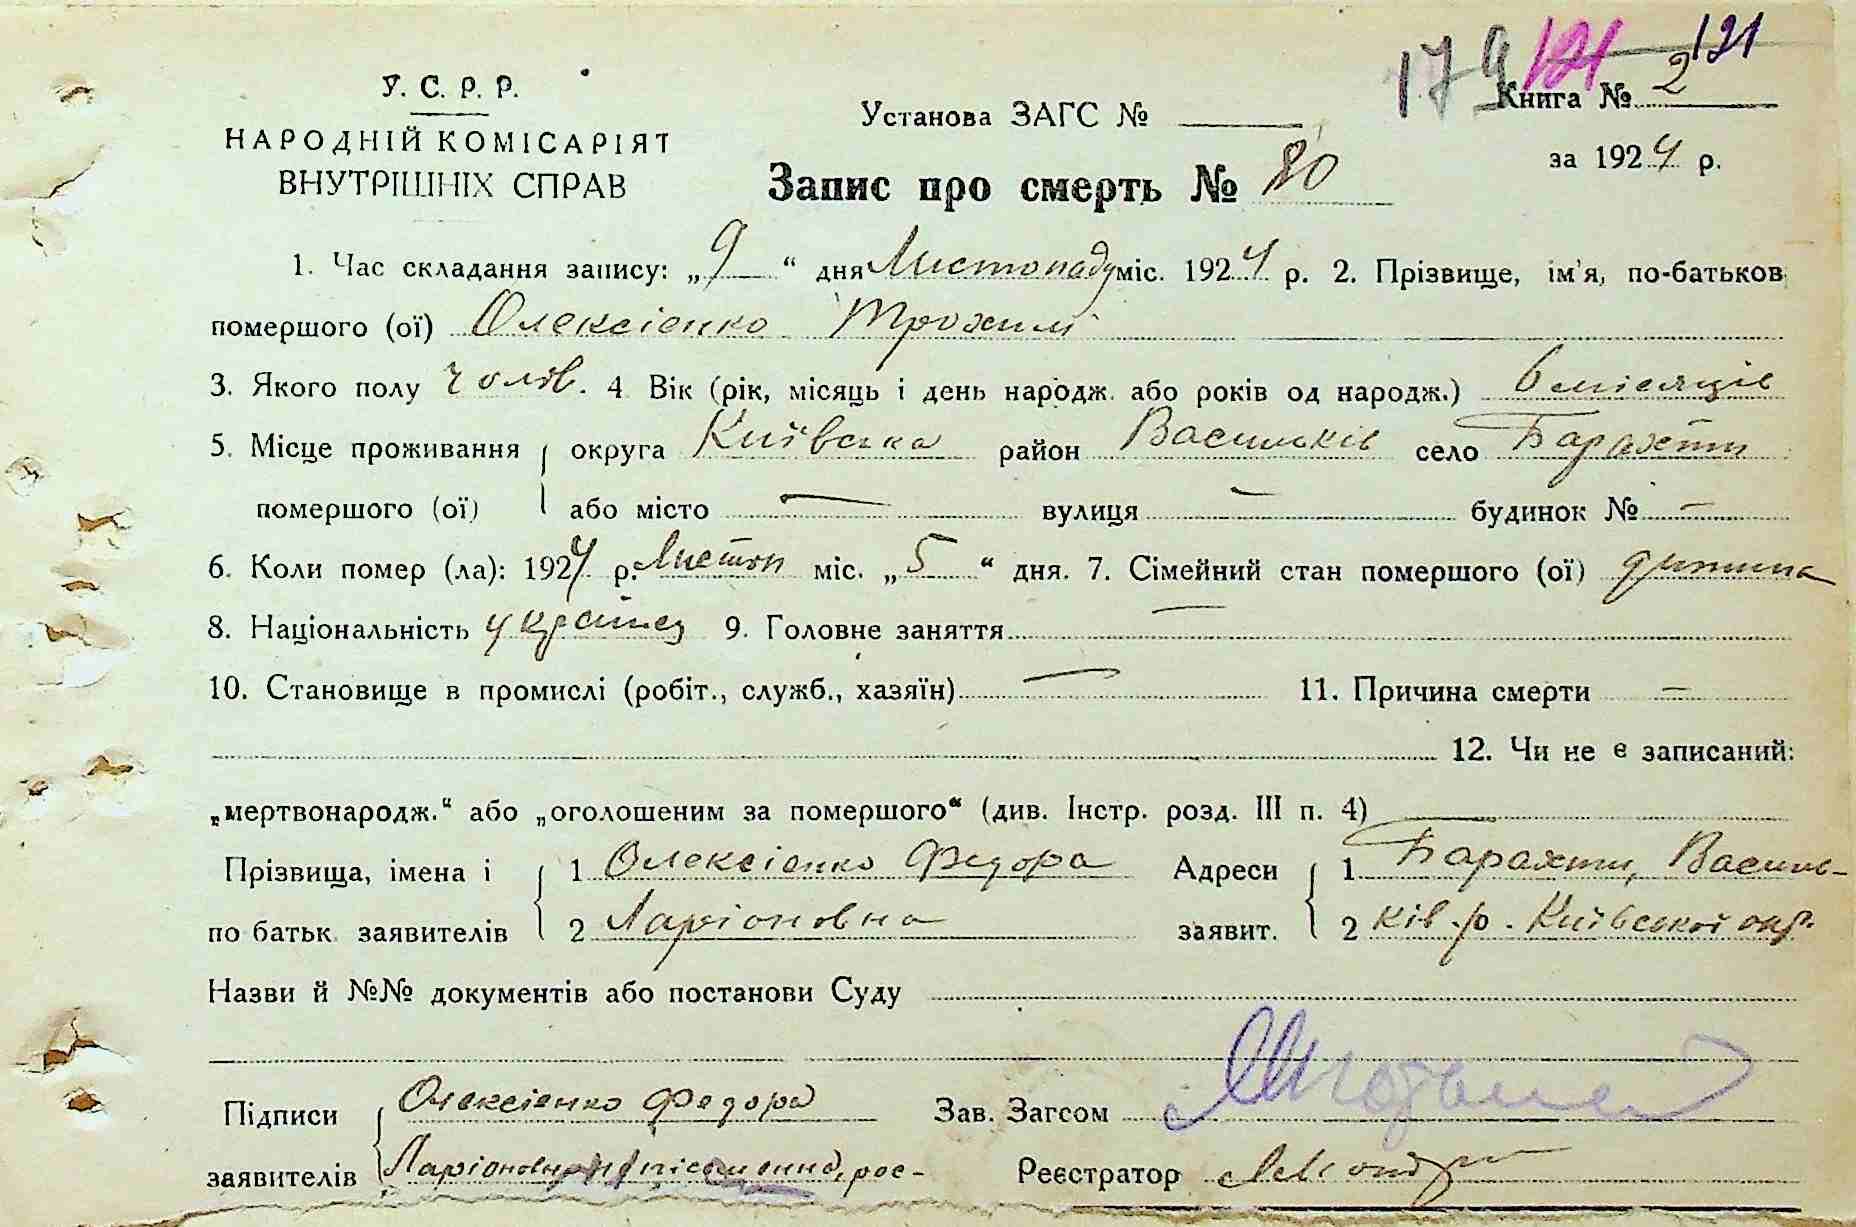 179 121 121
У. С. Р. Р.
НАРОДНІЙ КОМІСАРІЯТ
ВНУТРІШНІХ СПРАВ
Установа ЗАГС №
Книга № 2
за 1924 р.
Запис про смерть № 80
1. Час складання запису: „9“ дня Листопаду міс. 1924 р. 2. Прізвище, ім'я, по-батьков
помершого (ої) Олексієнко Трохим
3. Якого полу чолов. 4. Вік (рік, місяць і день народж. або років од народж.) 6 місяців
5. Місце проживання округа Київська район Васильків село Барахти
помершого (ої) або місто — вулиця — будинок № —
6. Коли помер (ла): 1924 р. Листоп міс. „5“ дня. 7. Сімейний стан помершого (ої) дитина
8. Національність українец 9. Головне заняття —
10. Становище в промислі (робіт., служб., хазяїн) — 11. Причина смерти —
12. Чи не є записаний:
„мертвонародж.“ або „оголошеним за помершого“ (див. Інстр. розд. III п. 4) —
Прізвища, імена і 1 Олексієнко Федора Адреси 1 Барахти, Василь-
по батьк. заявителів 2 Ларіоновна заявит. 2 ків. р. Київської окр.
Назви й №№ документів або постанови Суду
Підписи Олексієнко Федора Зав. Загсом
заявителів Ларіоновна рос- Реєстратор